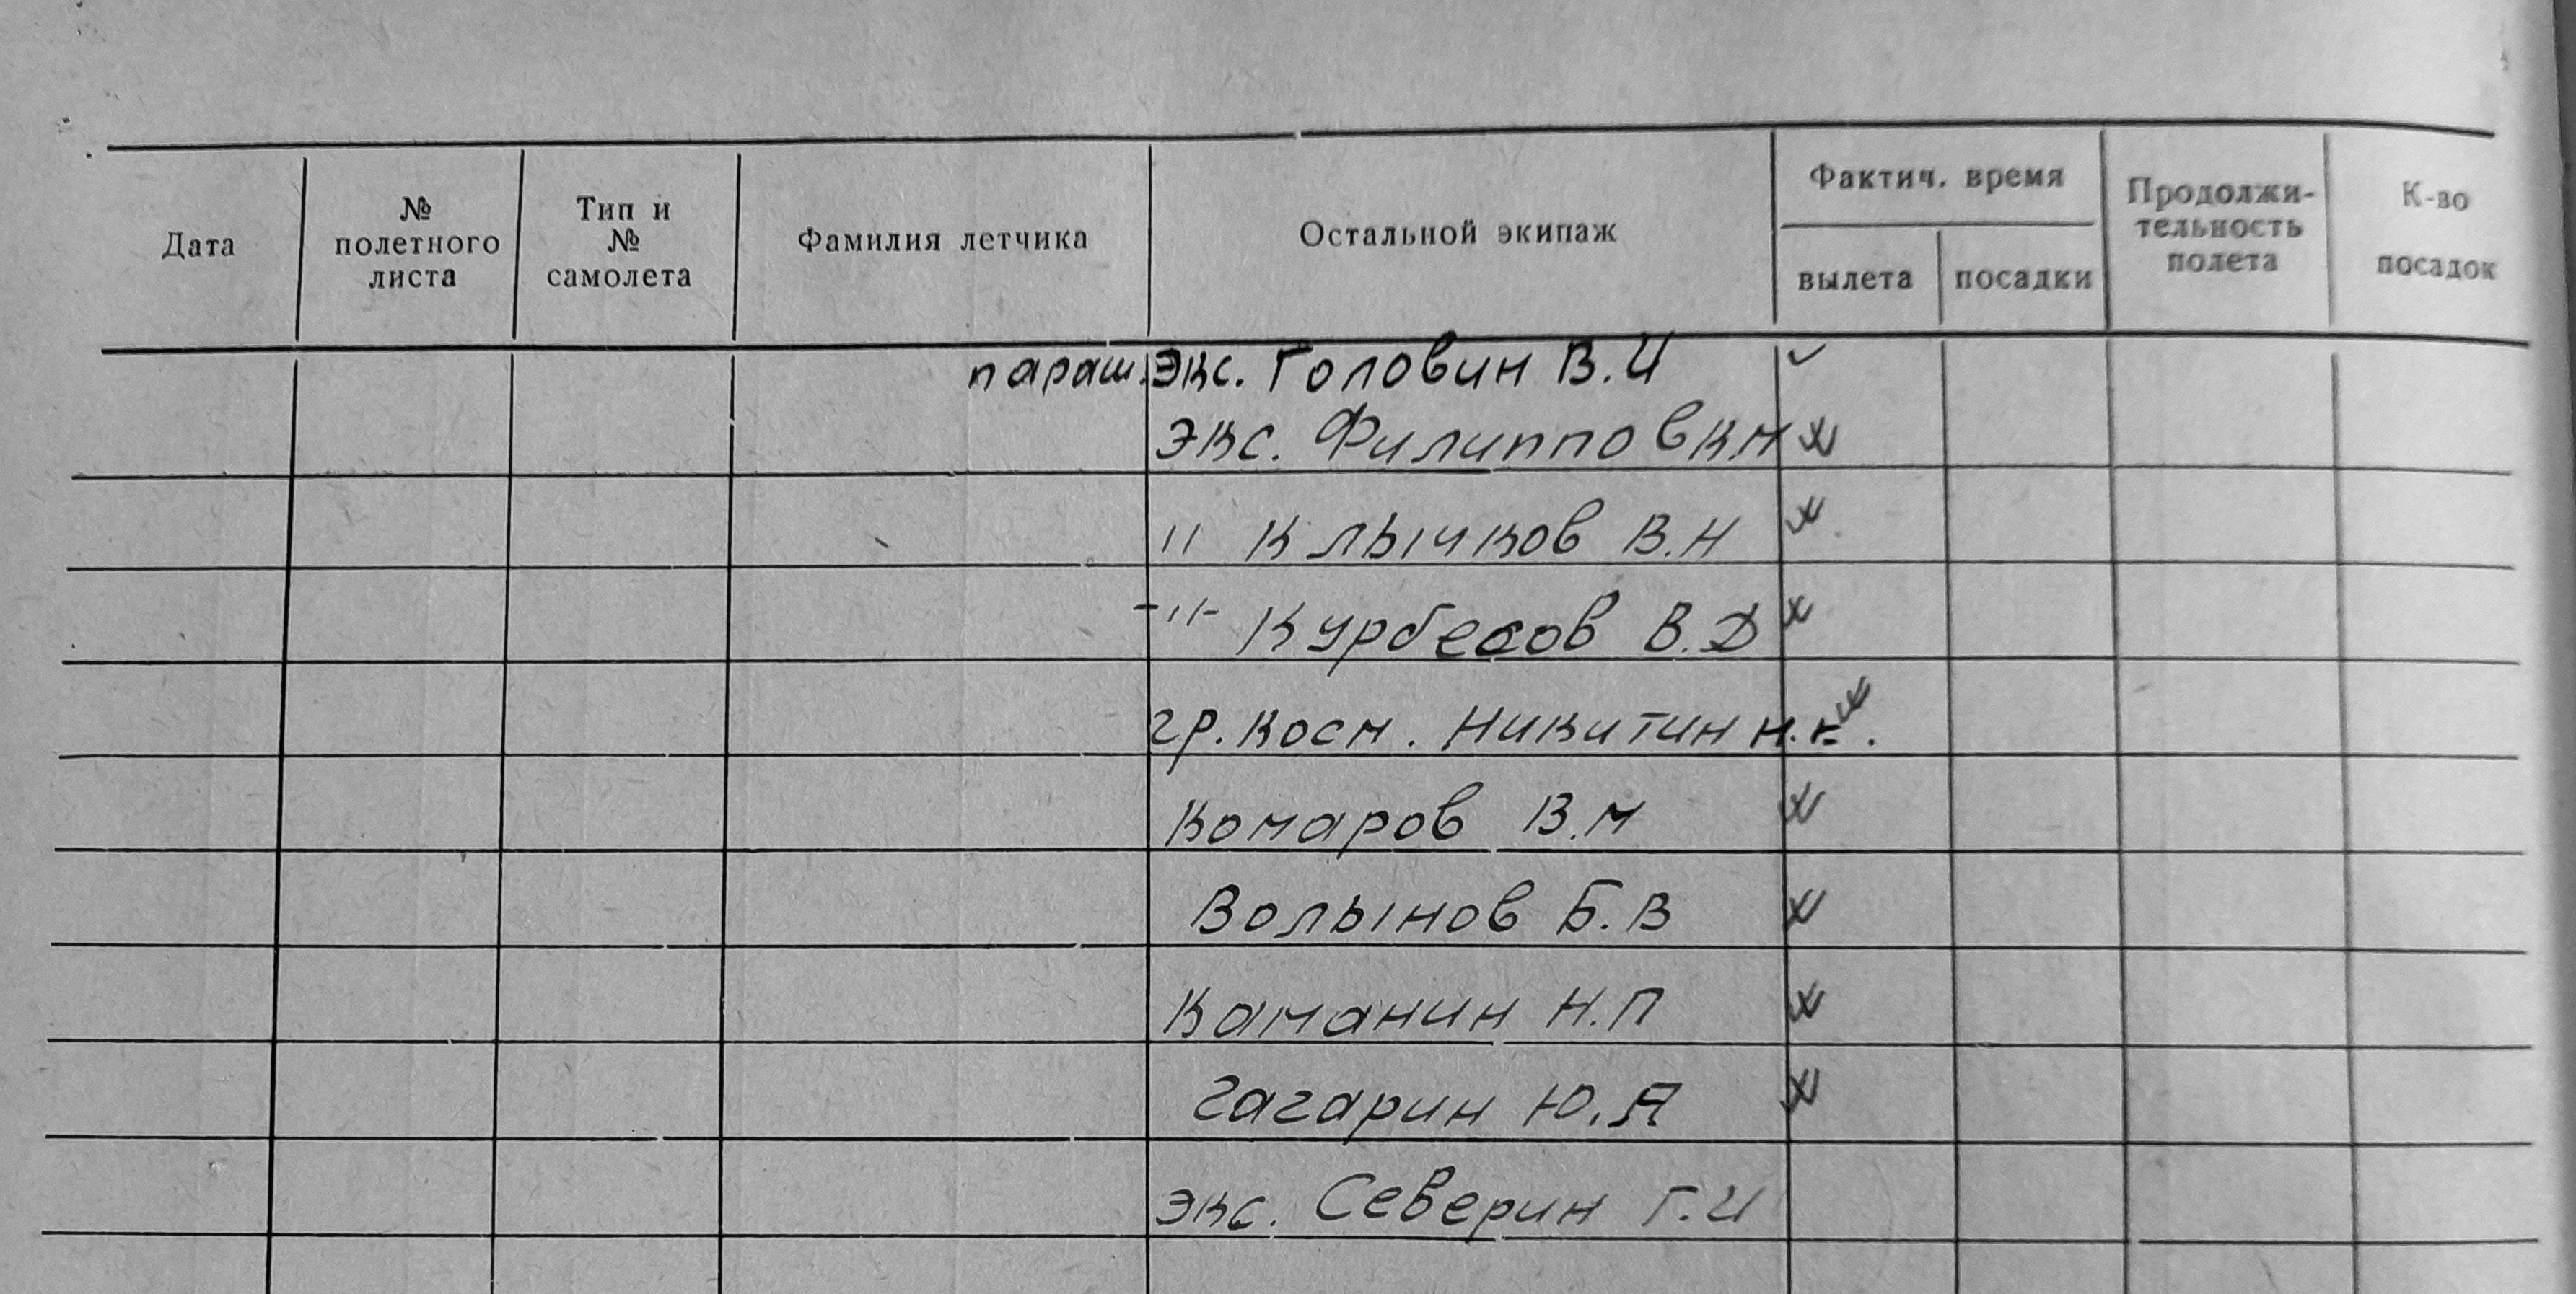 Дата
№ полетного листа
Тип и № самолета
Фамилия летчика
Остальной экипаж
Фактич. время
вылета
посадки
Продолжи-
тельность
полета
К-во
посадок
параш. экс. Головин В.И
экс. Филиппов К.Н
" Клычков В.Н
-"- Курбесов В.Д
гр. косм. Никитин Н.К.
Комаров В.М
Волынов Б.В
Каманин Н.П
Гагарин Ю.А
экс. Северин Г.И